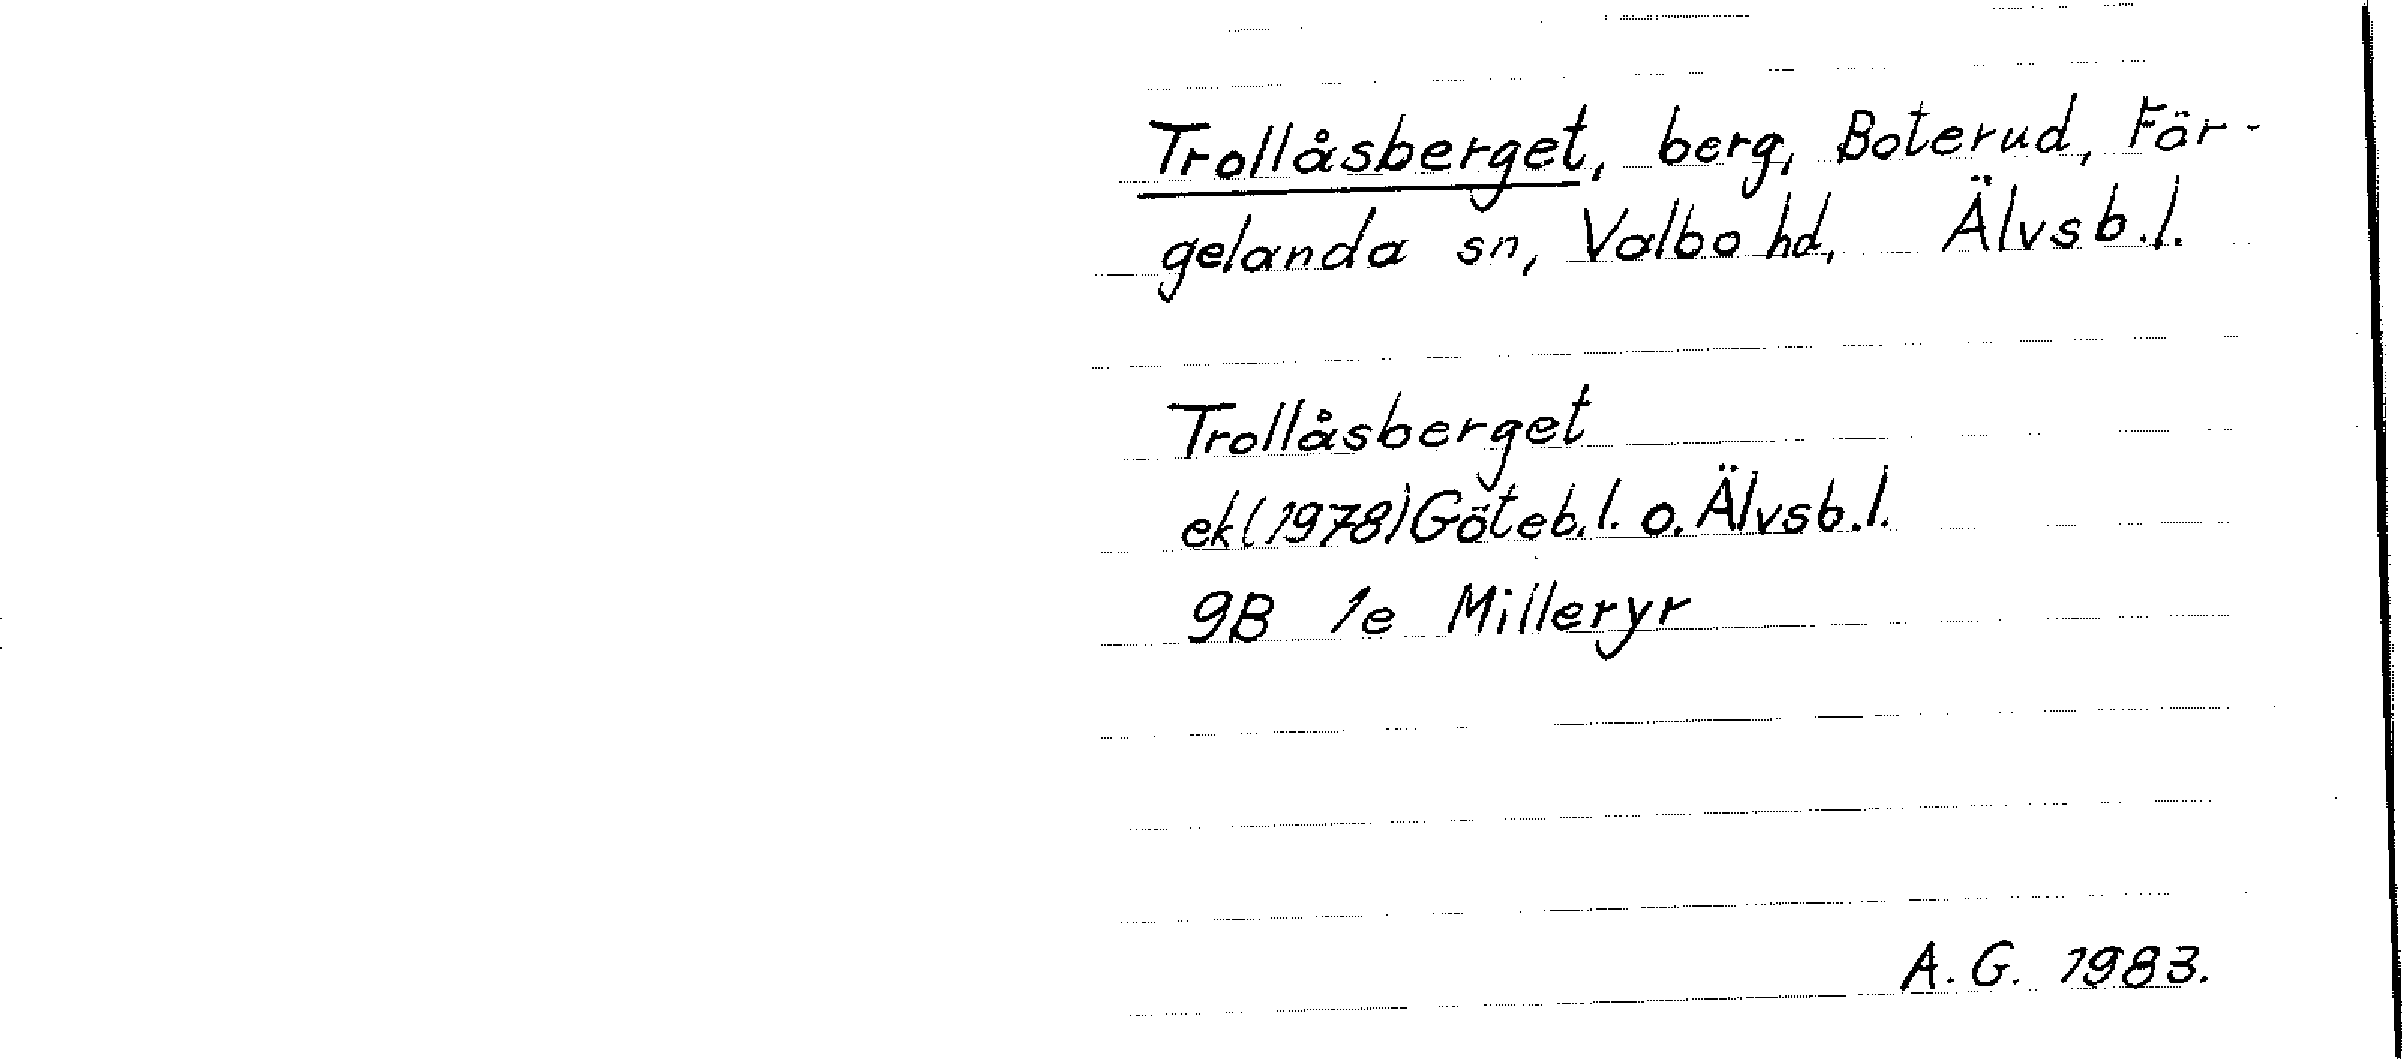 Trollåsberget, berg, Boterud, Fär-
gelanda sn, Valbo hd, Älvsb.l.
Trollåsberget
ek(1978)Göteb.l. o. Älvsb.l.
9B 1e Milleryr
A. G. 1983.